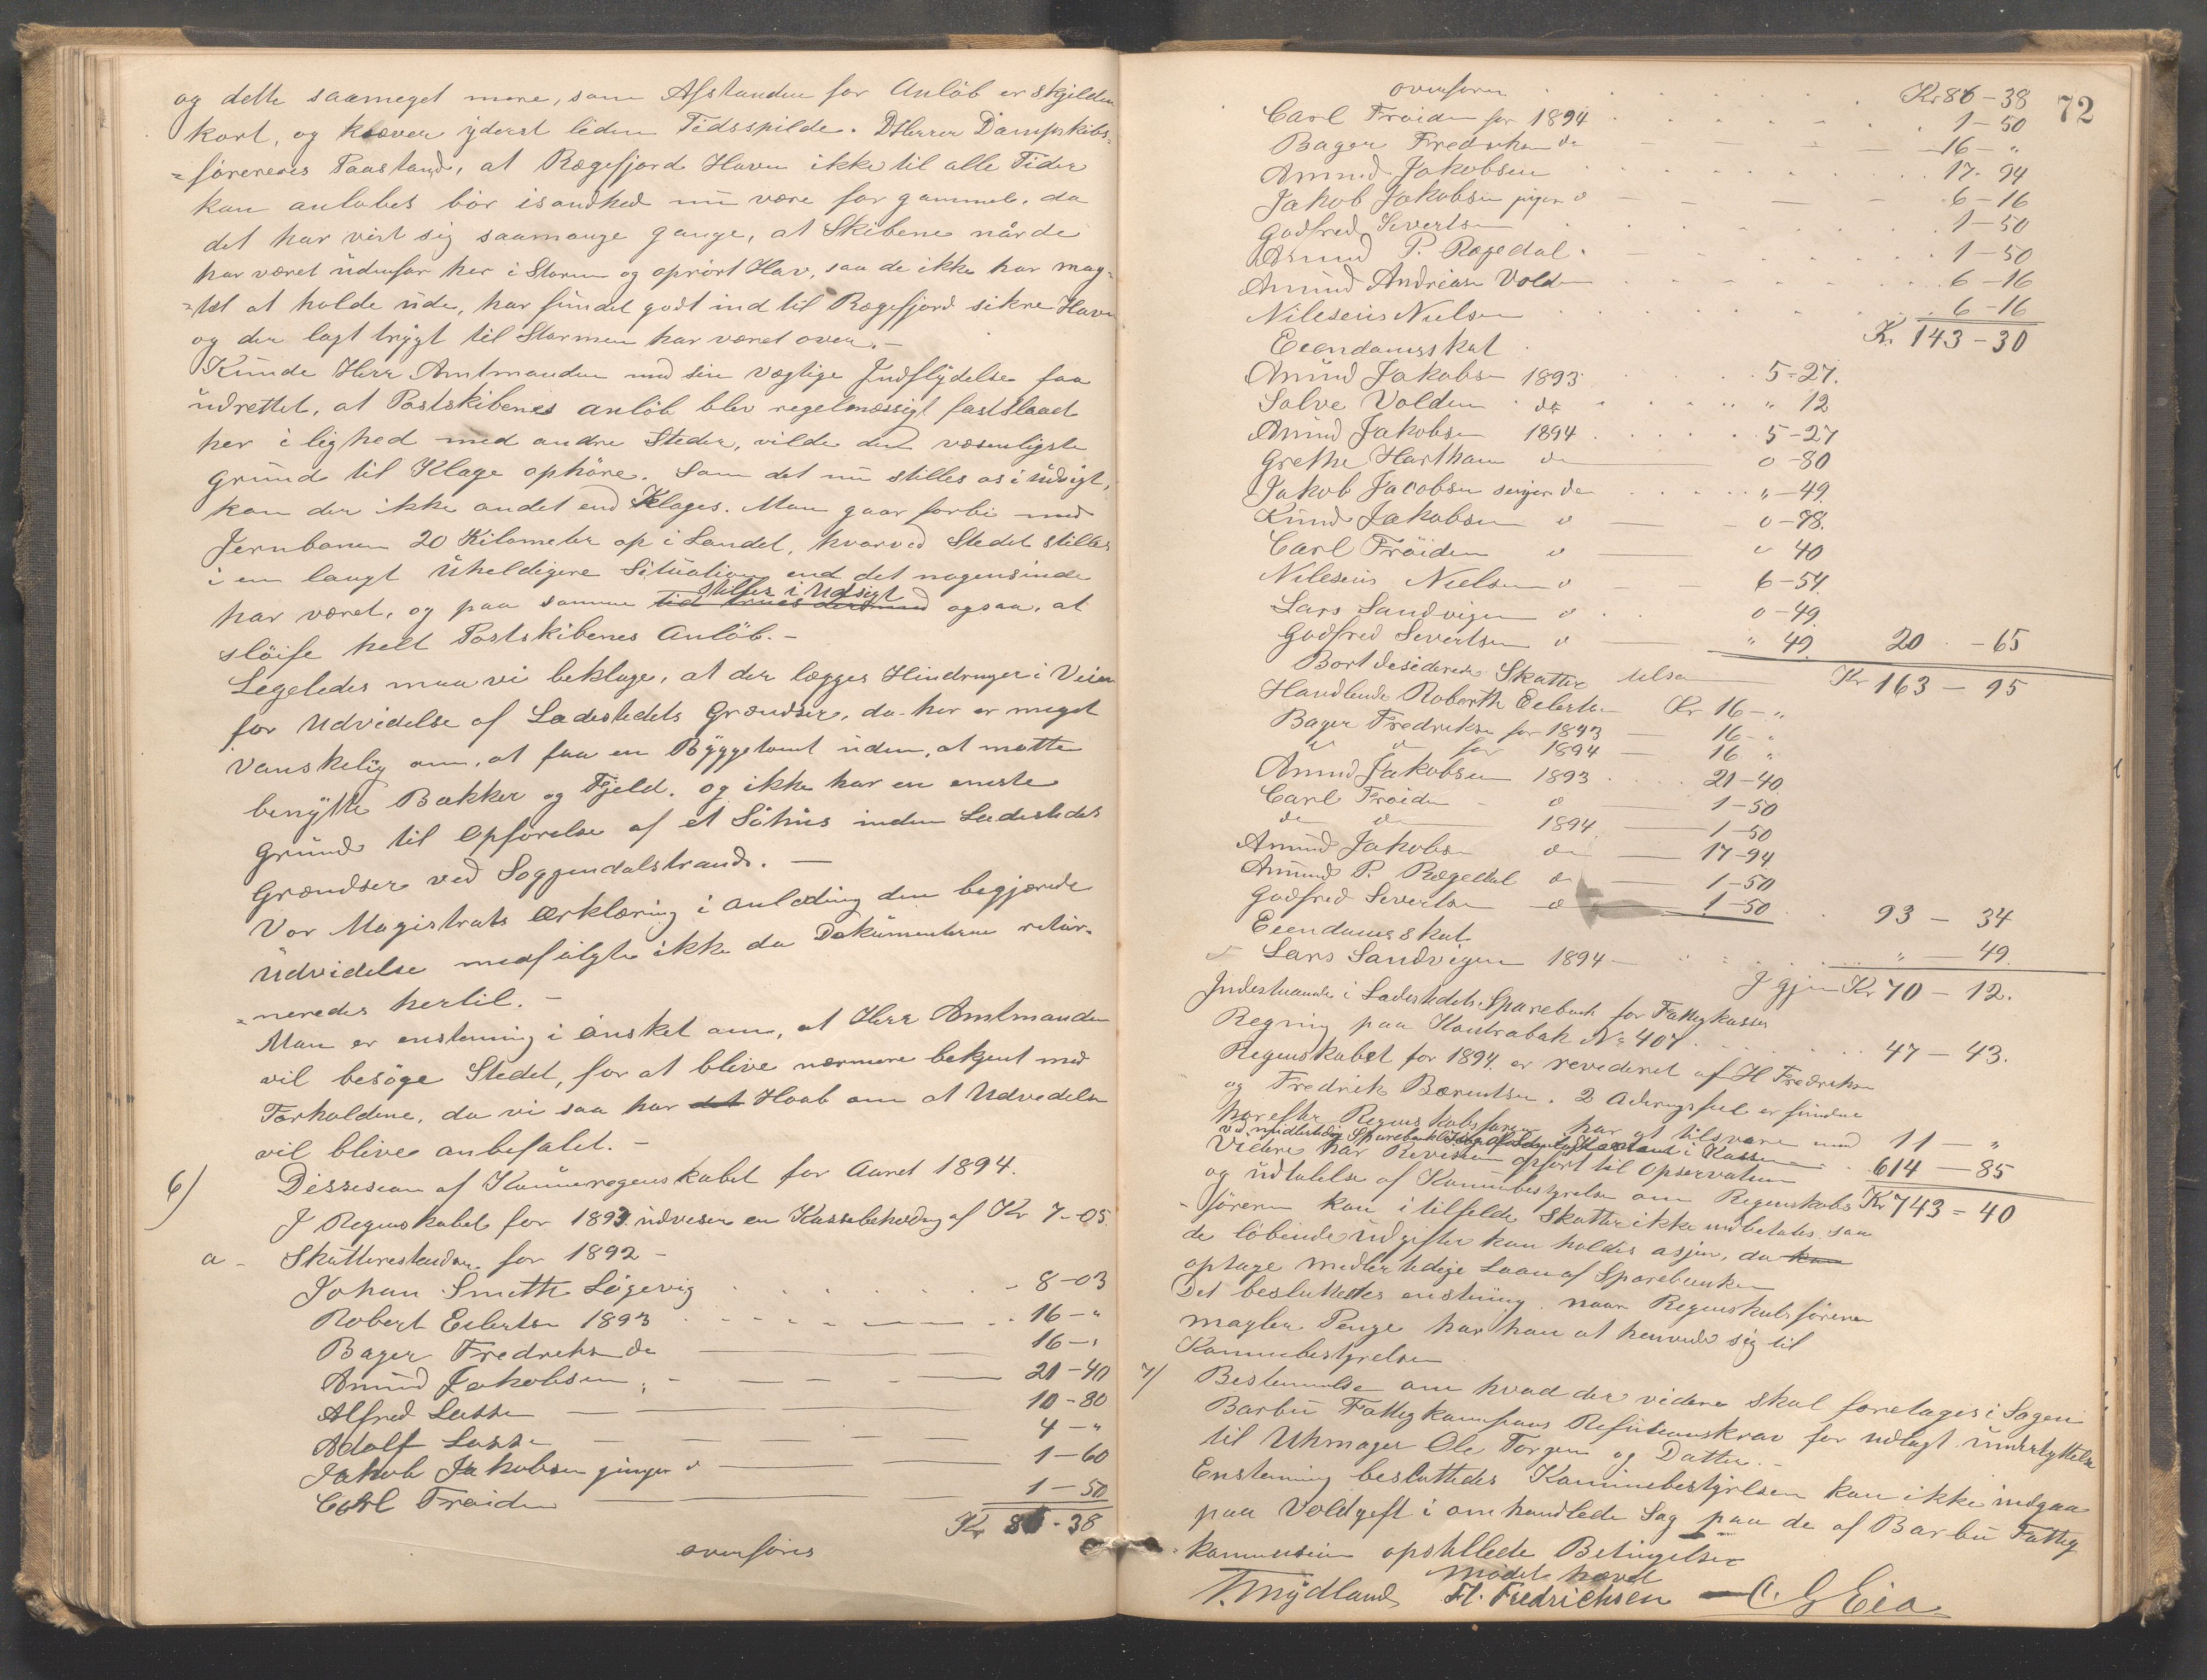 og dette saameget mere, som Afstanden for Anløb er skjelden
kort, og kræver yderst liden Tidsspilde. DHerrer Dampskibs-
=førereres Paastand, at Rægefjord Havn ikke til alle Tider
kan anløbes bør isandhed nu være for gammel, da
det har vist sig saamange gange, at Skibene når de
har været udenfor her i Storm og oprørt Hav, saa de ikke har mag=
=tet at holde ude, har fundet godt ind til Rægefjord sikre Havn
og der lagt trygt til Stormen har været over. -
Kunde Herr Amtmanden med sin vægtige Indflydelse faa
udrettet, at Postskibenes anløb blev regelmæssigt fastslaaet
her i lighed med andre Steder, vilde den væsenligste
grund til Klage ophøre. Som det nu stilles os i udsigt,
kan der ikke andet end Klages. Man gaar forbi med
Jernbanen 20 Kilometer op i Landet, hvorved Stedet stilles
i en langt uheldigere Situation end det nogensinde
stilles i Udsigt
har været, og paa samme tid trues dermed ogsaa, at
sløife helt Postskibenes Anløb. -
Legeledes maa vi beklage, at der lægges Hindringer i Veien
for Udvidelse af Ladestedets Grændser, da her er meget
vanskelig om, at faa en Byggetomt uden, at maatte
benytte Bakker og Fjeld. og ikke har en eneste
grund til Opførelse af et Søhus inden Ladestedets
Grændser ved Soggendalstrand. -
Vor Magistrats Erklæring i anleding den begjærede
Udvidelse medfulgte ikke da Dokumenterne retur-
=neredes hertil. -
Man er enstemmig i ønsket om, at Herr Amtmanden
vil besøge Stedet, for at blive nærmere bekjent med
Forholdene, da vi saa har det Haab om at Udvedelsen
vil blive anbefalet. -
6) Dissesion af Kommuneregenskabet for Aaret 1894.
I Regenskabet for 1893 udvises en Kassebeholdng af Kr 7-05.
a - Skatterestanser for 1892 -
Johan Smith Løgevig - 8-03
Robert Eilertsen 1893 16-"
Bager Fredriksen do 16-"
Amund Jakobsen 21-40
Alfred Lassen 10-80
Adolf Lassen 4-"
Jakob Jakobsen yngre d 1-60
Carl Frøiden 1-50
Kr 86-38
overføres
72
overførn Kr 86-38
Carl Frøiden for 1894 1-50
Bager Fredriksen do 16-"
Amund Jakobsen 17-94
Jakob Jakobsen yngre d 6-16
Godfred Sivertsen 1-50
Amund P. Rægedal 1-50
Amund Andreas Volden 6-16
Nilesius Nielsen 6-16
Kr. 143-30
Eiendamsskat
Amund Jakobsen 1893 5-27.
Salve Volden do " 12
Amund Jakobsen 1894 5-27
Grethe Hartham do 0-80
Jakob Jacobsen senjor do "-49
Knud Jakobsen d 0-98.
Carl Frøiden d " 40
Nilesius Nielsen d 6-54
Lars Sandvigen d 0-49
Godfred Severtsen d " 49 20 - 65
Bort desiderede Skatter
Kr 163 - 95
Handlende Roberth Eilertsen Kr 16-"
Bager Fredriksen for 1893 16-"
d d for 1894 - 16 "
Amund Jakobsen 1893 21-40
Carl Frøiden d 1-50
do do 1894 1-50
Amund Jakobsen do 17-94
Amund P. Rægedal do 1-50
Godfred Severtsen d 1-50 93 - 34
Eiendamsskat
Lars Sandvigen 1894 " - 49
Igjen Kr 70 - 12.
Indestaaende i Ladestedets Sparebank for Fattigkassens
Regning paa Kontrabok No 407 47 - 43.
Regenskabet for 1894 er revideret af H Fredriksen
og Fredrik Bærentsen. 2 Aderingsfeil er fundne
hvorefter Regenskabsføren har at tilsvare med 11 - "
ved midlertidig Sparebank i Kassen 614 - 85
Videre har Revisien opført til Opservation
og udtalelse af Kommunebestyrelsen om Regenskabs Kr 743 = 40
-føreren kan i tilfelde Skatter ikke indbetales saa
de løbende udgifter kan holdes asjør, da kan
optage midlertidige Laan af Sparebanken
Det besluttedes enstemig naar Regenskabsføreren
magler Penge har han at henvende sig til
Kommunebestyrelsen
7/ Bestemmelse om hvad der videre skal foretages i Sagen
Barbu Fattigkommisions Refusionskrav for udlagt understyttelse
til Uhrmager Ole Torgersen og Datter. -
Enstemmig besluttedes Kommunebestyrelsen kan ikke indgaa
paa Voldgift i omhandlede Sag paa de af Barbu Fattig
-kommission opstillede Betingelser
Mødet hævet
T. Mydland H. Fredrichsen - C. G Eia